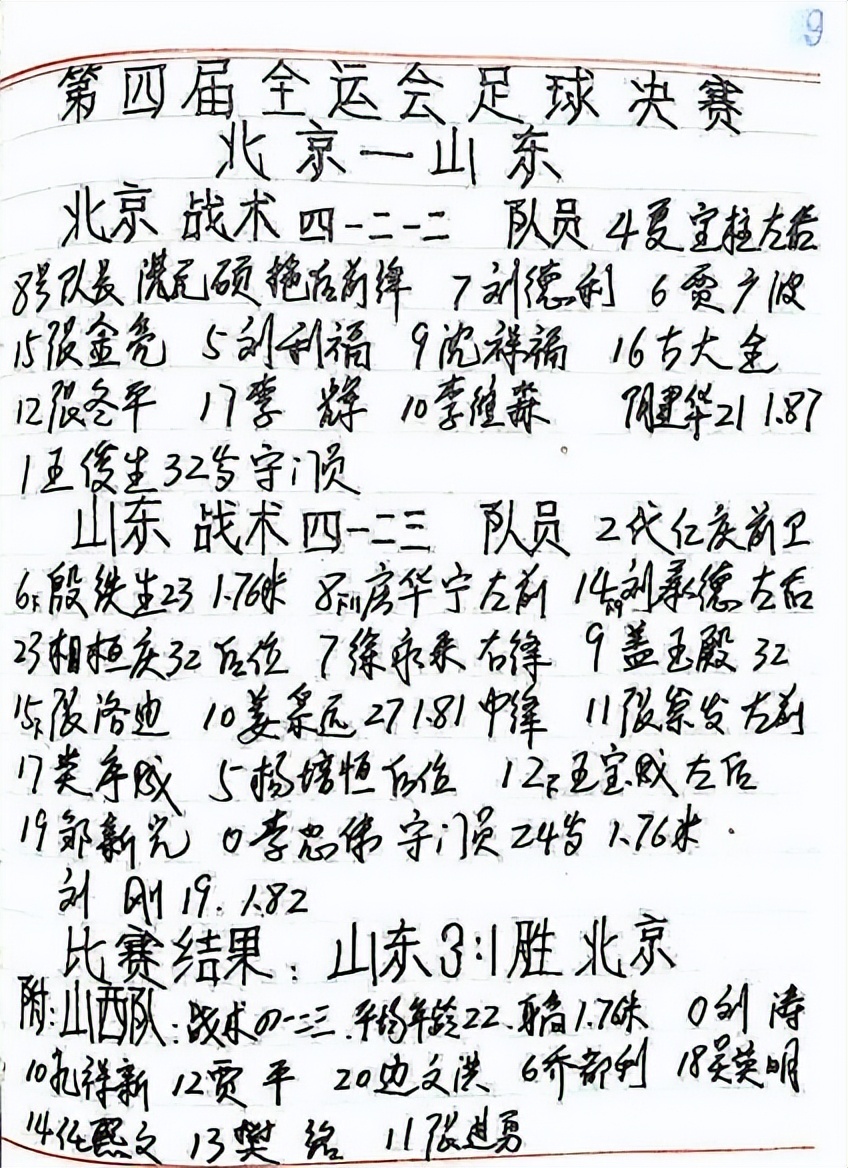 9
第四届全运会足球决赛
北京一山东
北京 战术 四一二一二 队员 4夏宝柱左后
8号队长 洪元硕 拖后前锋 7刘德利 6贾广波
15张金亮 5刘利福 9沈祥福 16古大全
12张冬平 17李 辉 10李维淼 阴建华21 1.87
1王俊生32岁守门员
山东 战术四一二三 队员 2代仁庆前卫
6下殷铁生23 1.76米 8下11房华宁左前 14刘承德左后
23相恒庆32后位 7徐永来右锋 9盖玉殿32
15下张洛迪 10姜杲远27 1.81中锋 11张景发左前
17黄序成 5杨培恒后位 12下王宝成左后
19邹新光 0李忠伟 守门员24岁1.76米.
刘 刚19. 1.82
比赛结果：山东3:1胜北京
附:山西队:战术四一二三.平均年龄22.身高1.76米 0刘 涛
10祥新 12贾 平 20边文洪 6乔都利 18吴英明
14任熙文 13樊 铭 11张进勇